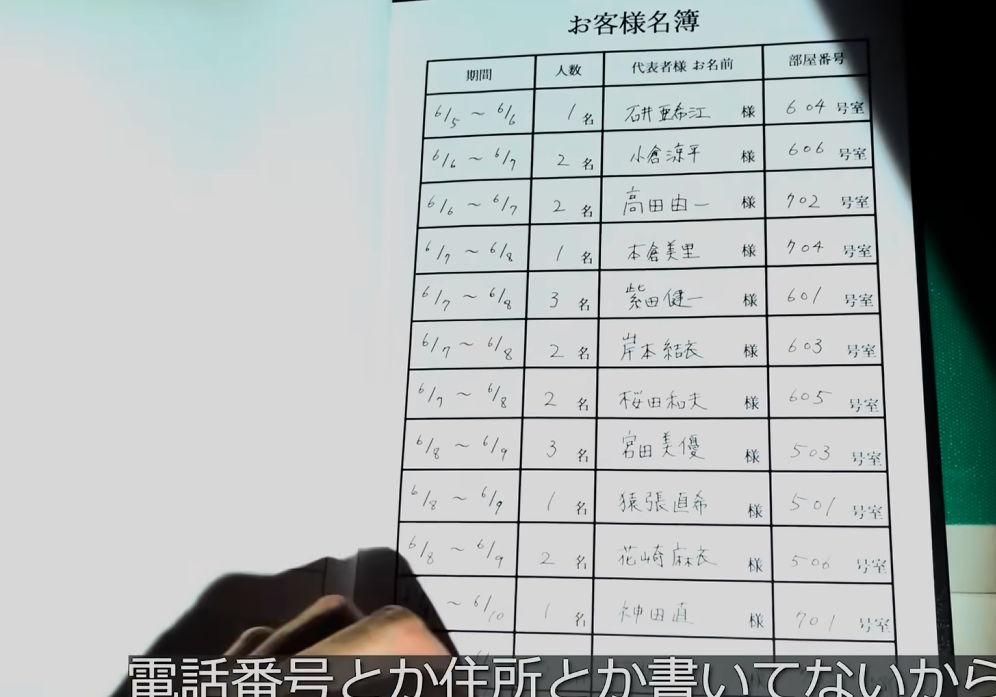 お客様名簿
期間 人数 代表者様 お名前 部屋番号
6/5 ~ 6/6 1名 石井亜希江 様 604号室
6/6 ~ 6/7 2名 小倉涼平 様 606号室
6/6 ~ 6/7 2名 高田由一 様 702号室
6/7 ~ 6/8 1名 本倉美里 様 704号室
6/7 ~ 6/8 3名 紫田健一 様 601号室
6/7 ~ 6/8 2名 岸本結衣 様 603号室
6/7 ~ 6/8 2名 桜田和夫 様 605号室
6/8 ~ 6/9 3名 宮田美優 様 503号室
6/8 ~ 6/9 1名 猿張直希 様 501号室
6/8 ~ 6/9 2名 花崎麻衣 様 506号室
~ 6/10 1名 神田直 様 701号室
電話番号とか住所とか書いてないから